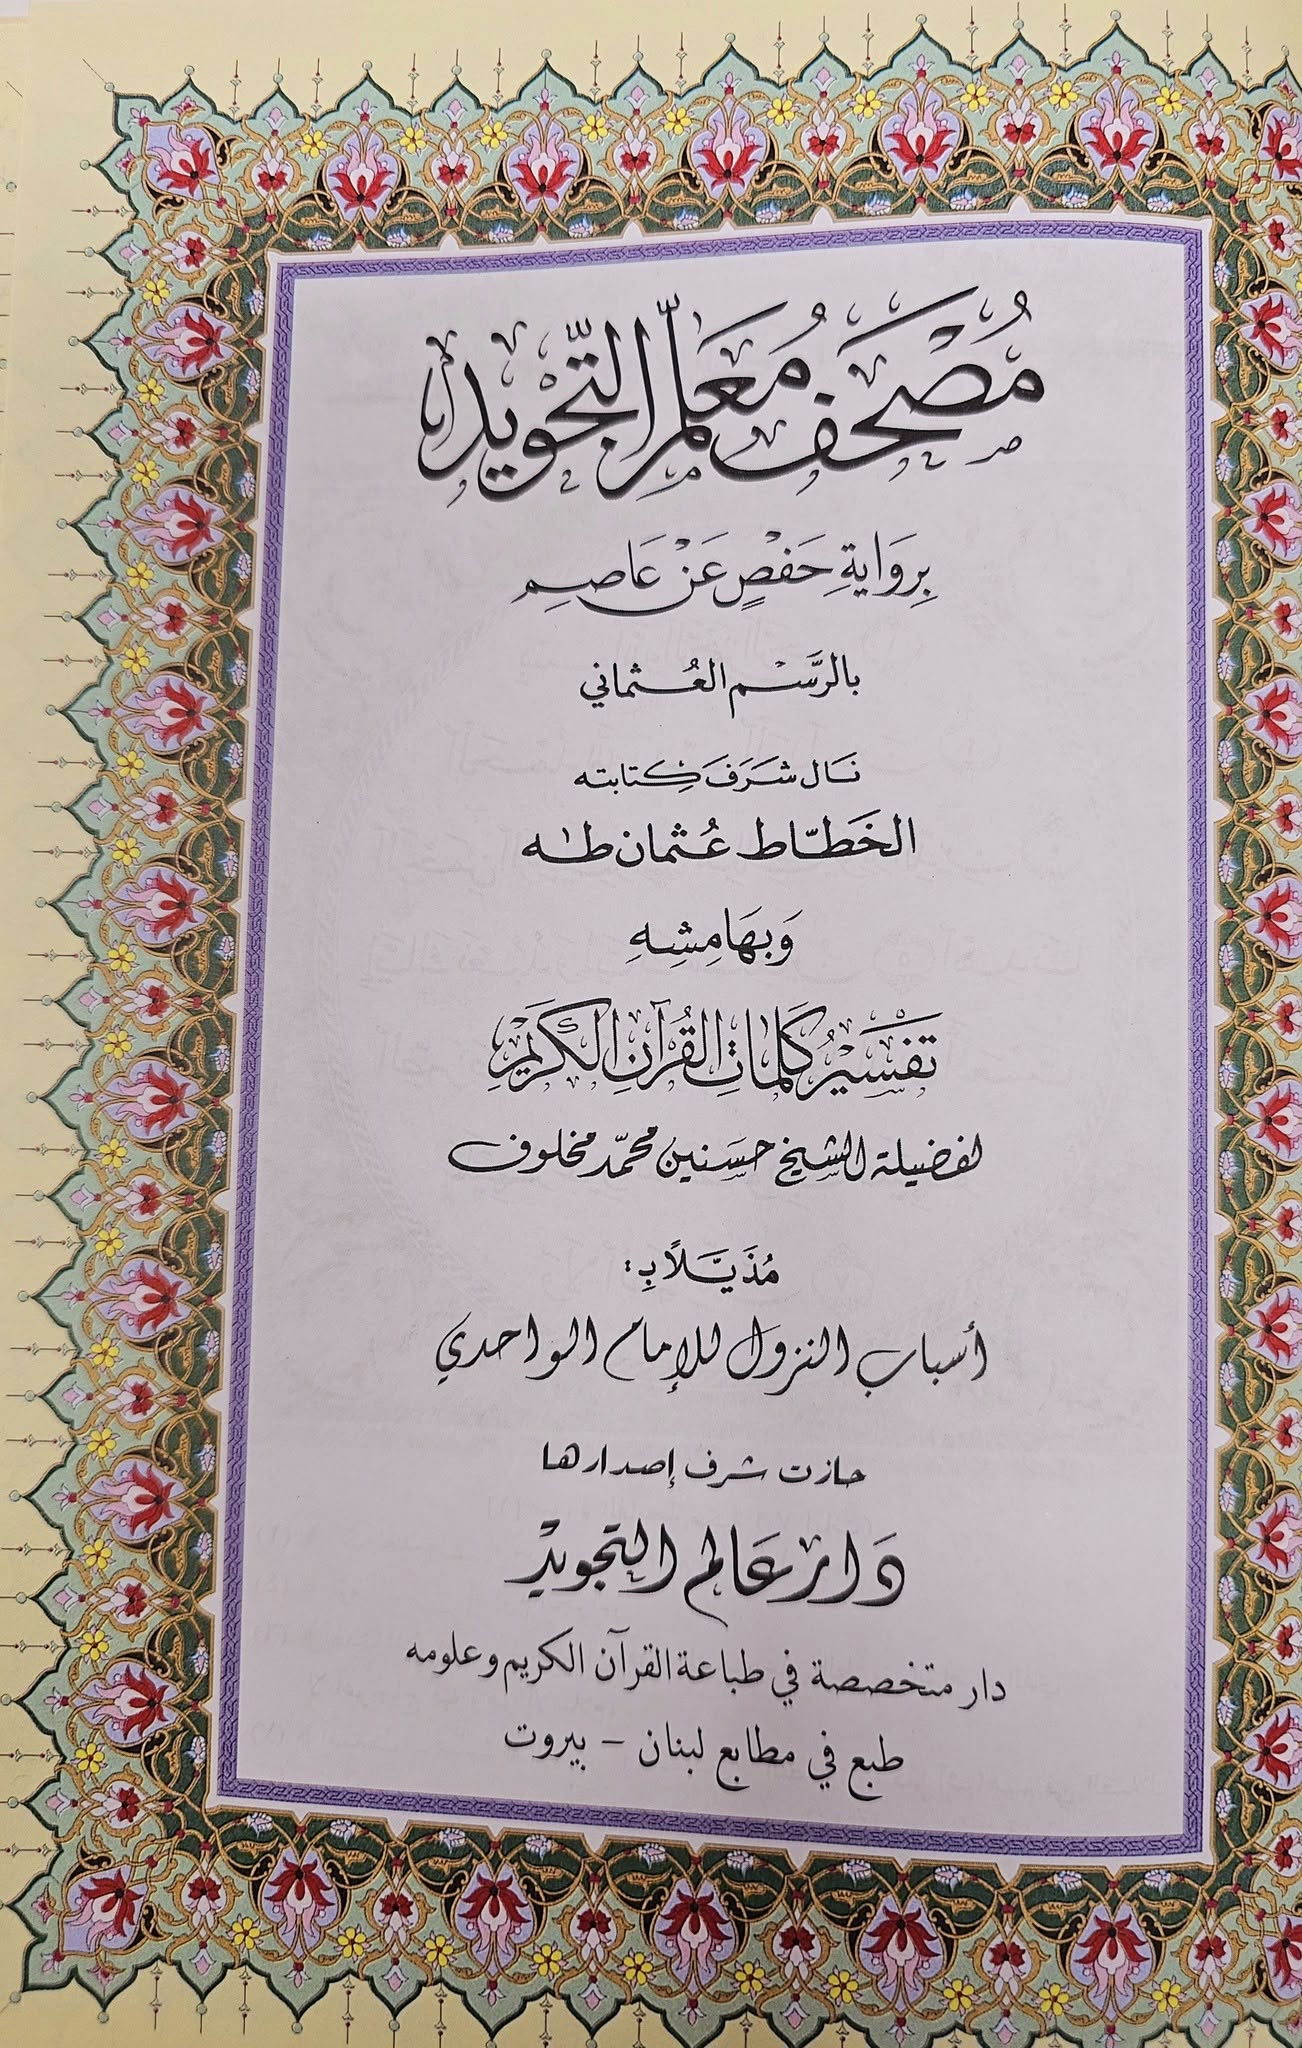 مُصْحَف مُعَلِّم التَّجْوِيد
بِرِوَايَةِ حَفْصٍ عَنْ عَاصِمٍ
بالرَّسْمِ العُثماني
نَال شَرَفَ كِتابته
الخَطّاط عُثمان طٰه
وَبِهَامِشِهِ
تَفْسِيْرُ كَلِمَاتِ القُرْآنِ الكَرِيْمِ
لفضيلة الشيخ حسَنين محمّد مخلوف
مُذَيَّلاً بِ:
أسباب النزول للإمام الواحدي
حازت شرف إصدارها
دَار عَالم التجويدْ
دار متخصصة في طباعة القرآن الكريم وعلومه
طبع في مطابع لبنان - بيروت